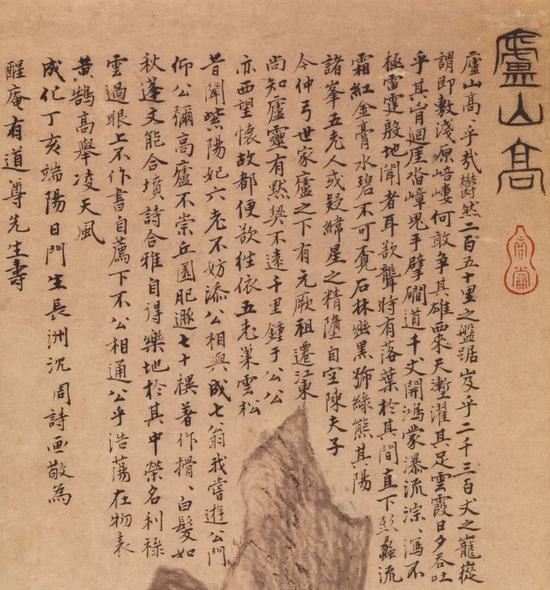 廬山高
廬山高高乎哉鬱然二百五十里之盤踞岌乎二千三百丈之巃嵷
謂即敷淺原培嶁何敢爭其雄西來天塹濯其足雲霞日夕吞吐
乎其胷廻崖沓嶂鬼手擘磵道千丈開鴻蒙瀑流淙淙瀉不
極雷霆殷地聞者耳欲聾時有落葉於其間直下彭蠡流
霜紅金膏水碧不可覓石林幽黑號綠熊其陽
諸峯五老人或疑緯星之精隳自空陳夫子
今仲弓世家廬之下有元厥祖遷江東
尚知廬靈有默契不遠千里鍾于公公
亦西望懷故都便欲往依五老巢雲松
昔聞紫陽妃六老不妨添公相與成七翁我嘗遊公門
仰公彌高廬不崇丘園肥遯七十禩著作揖揖白髮如
秋蓬文能合墳詩合雅自得樂地於其中榮名利祿
雲過眼上不作書自薦下不公相通公乎浩蕩在物表
黃鵠高舉凌天風
成化丁亥端陽日門生長洲沈周詩畫敬為
醒庵有道尊先生壽